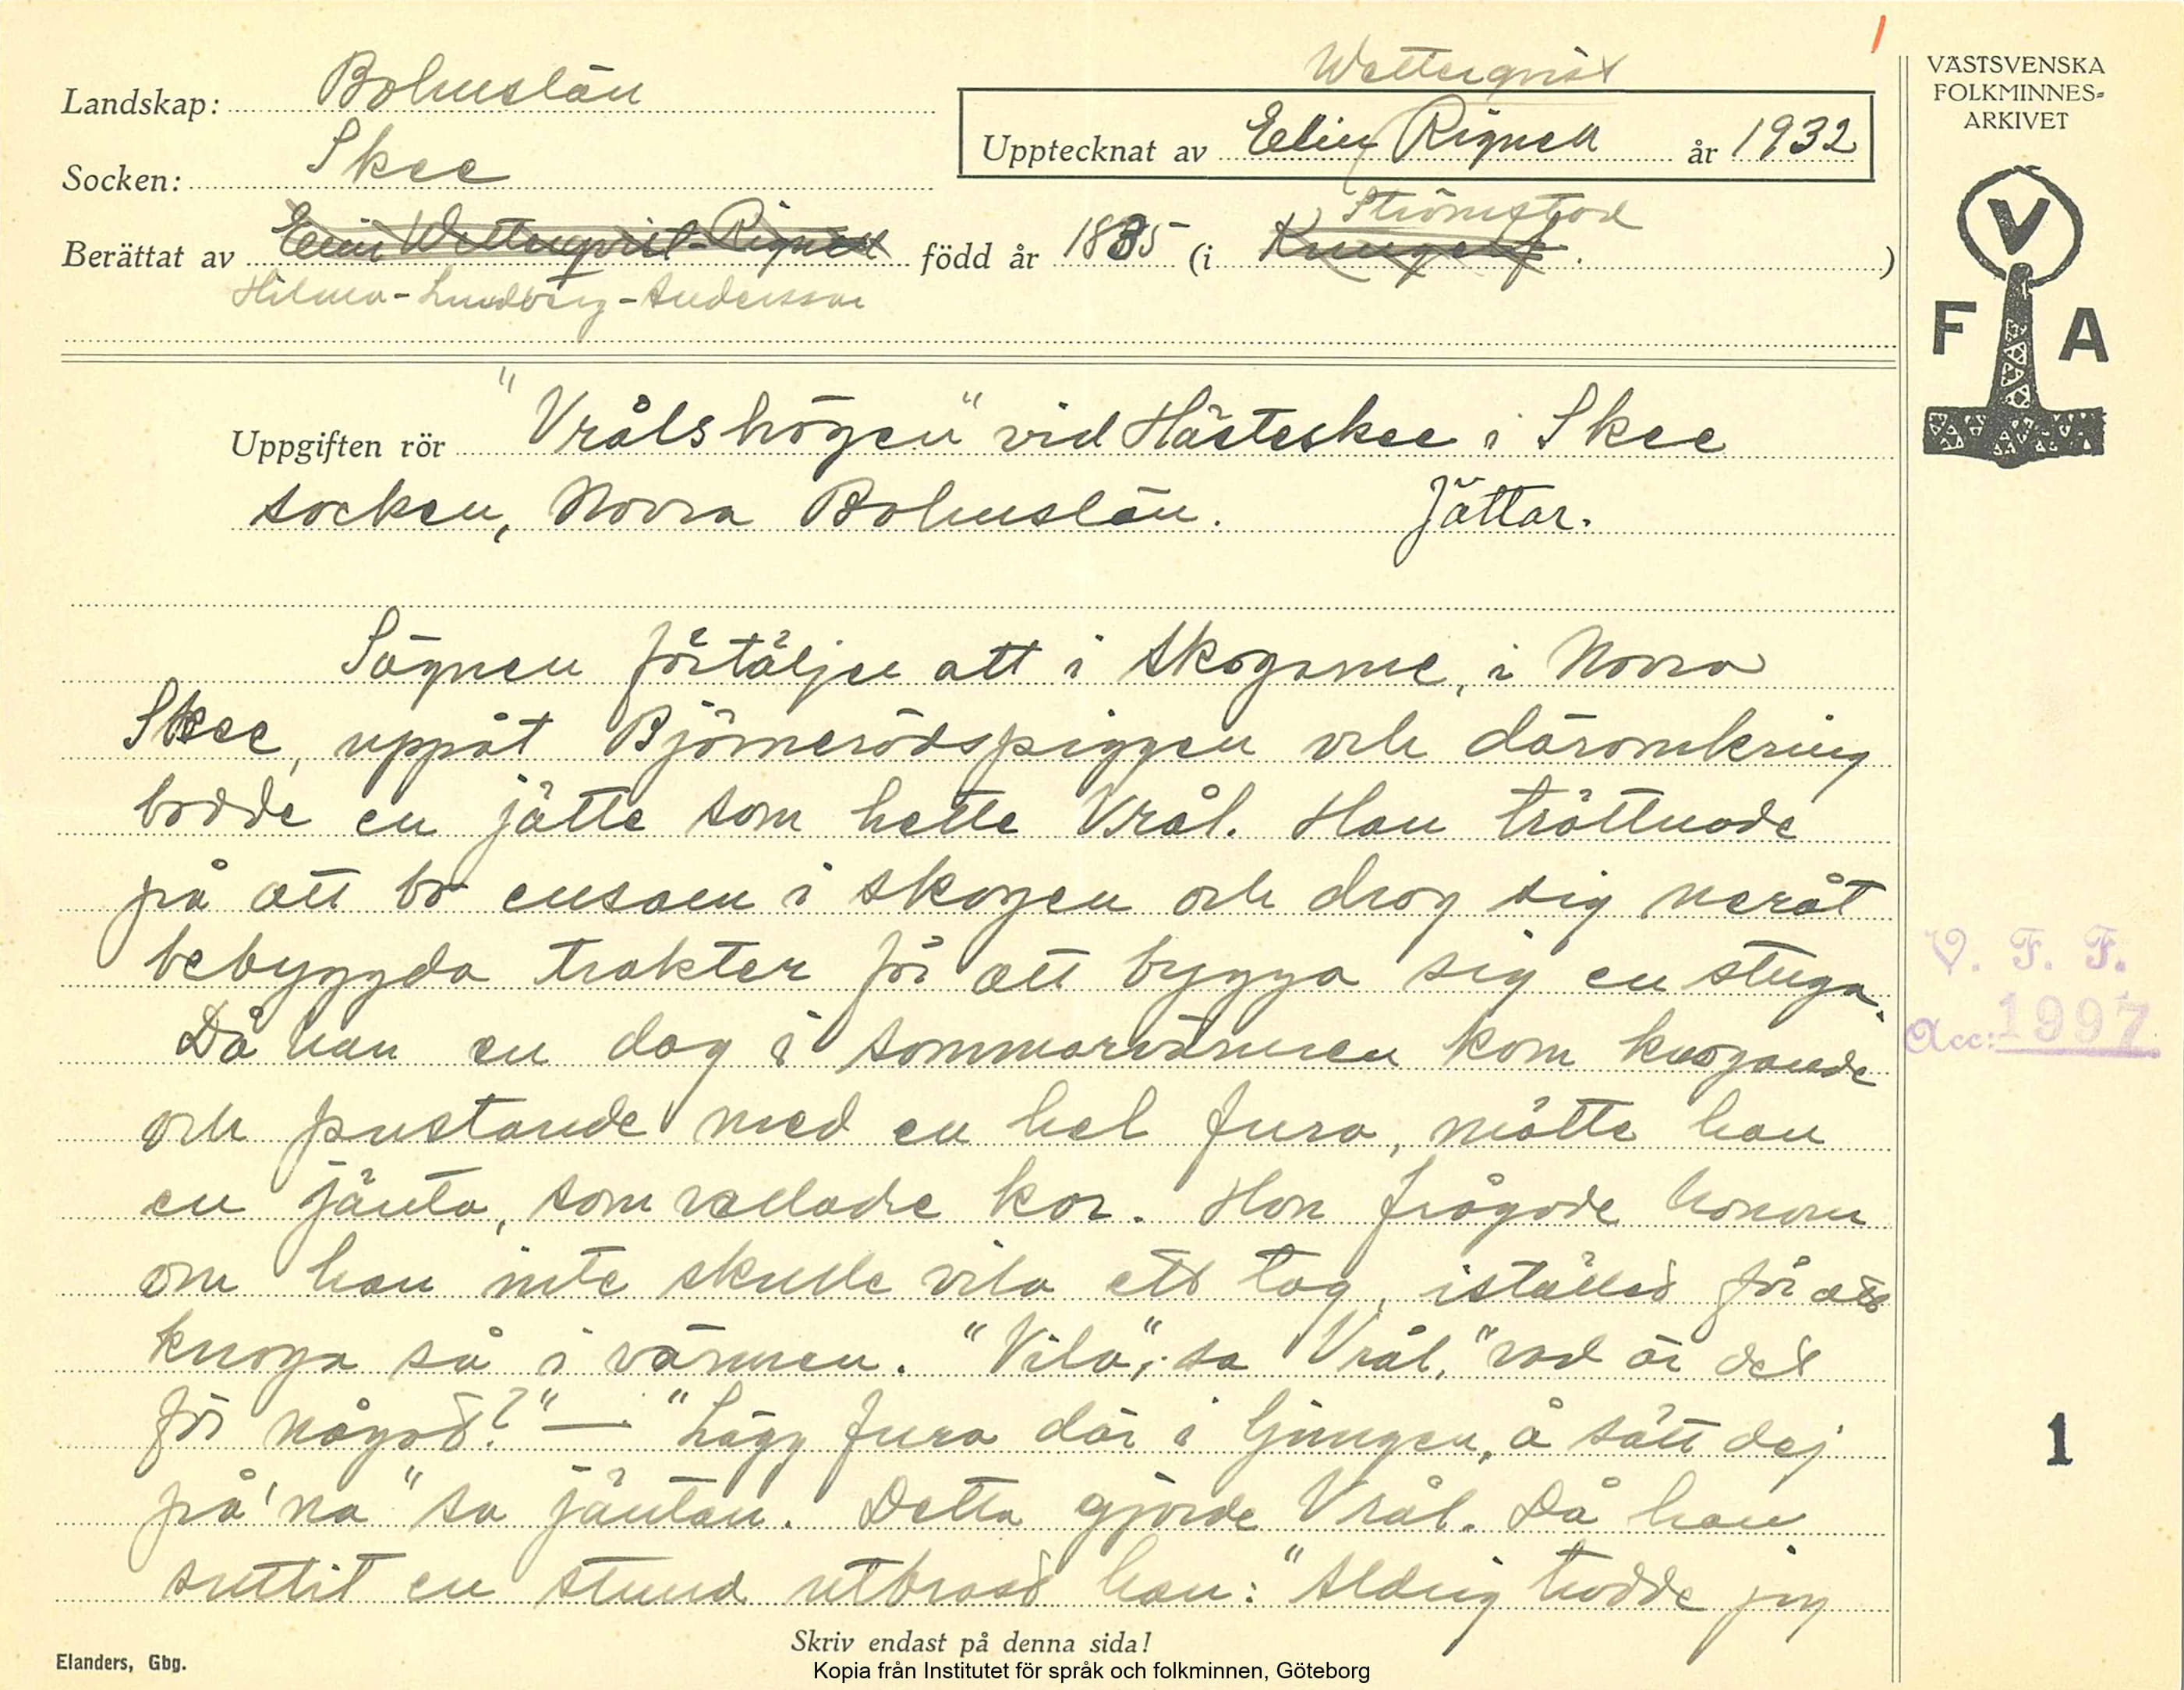 1
Wetterqvist
Landskap: Bohuslän
Upptecknat av Elin Rignell år 1932
Socken: Skee
Strömstad
Berättat av Elin Wetterqvist-Rignell född år 1885 (i Kungelf.)
Hilma-Lundberg-Andersson
VÄSTSVENSKA
FOLKMINNES=
ARKIVET
V
F A
Uppgiften rör "Vrålshögen" vid Hästeskee i Skee
socken, Norra Bohuslän. Jättar.
Sägnen förtäljer att i skogarne, i Norra
Skee, uppåt Björnerödspiggen och däromkring
bodde en jätte som hette Vrål. Han tröttnade
på att bo ensam i skogen och drog sig neråt
bebyggda trakter för att bygga sig en stuga.
Då han en dag i sommarvärmen kom knogande
och pustande med en hel fura, mötte han
en jänta, som vallade kor. Hon frågade honom
om han inte skulle vila ett tag, istället för att
knoga så i värmen. "Vila", sa Vrål, "vad är det
för något?" — "Lägg fura där i ljungen, å sätt dej
på'na" sa jäntan. Detta gjorde Vrål. Då han
suttit en stund utbrast han: "Aldrig trodde jag
V. F. F.
Acc: 1997
1
Skriv endast på denna sida!
Elanders, Gbg.
Kopia från Institutet för språk och folkminnen, Göteborg